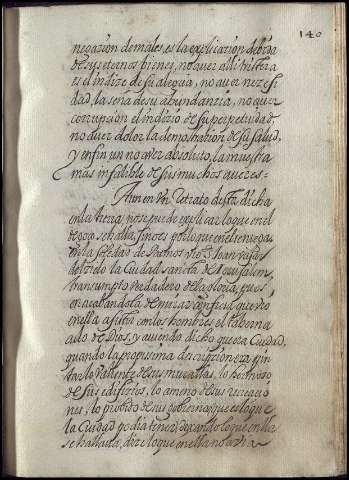 140
negazion de males, es la explicazion de
de sus eternos bienes, no aver alli tristeza
es el indize de su alegria, no aver nezesi
dad, la seña de su abundanzia, no aver
corrupzion el indizio de su perpetuidad,
no aver dolor la demostrazion de su salud,
y en fin un no aver absoluto, la muestra
mas infalible de sus muchos averes =
Aun en un Retrato desta dicha
en la tierra nos puede explicar lo que en el
se halla, sino es por lo que en el se niega,
en la soledad de Patmos vio S. Joan
del zielo la Ciudad sancta de Jerusalem,
transumpto verdadero de la gloria, pues
en acabandola de mirar que vio
en ella asistir con los hombres el taberna
culo de Dios, y aviendo dicho que era Ciudad,
quando la propissima descripzion era pin
tar lo valiente de sus murallas, lo hermoso
de sus edifizios, lo ameno de sus recreazio
nes, lo de su govierno que es lo que
la Ciudad podia tener, dexando lo que en ella
se hallava, dize lo que en ella no avia